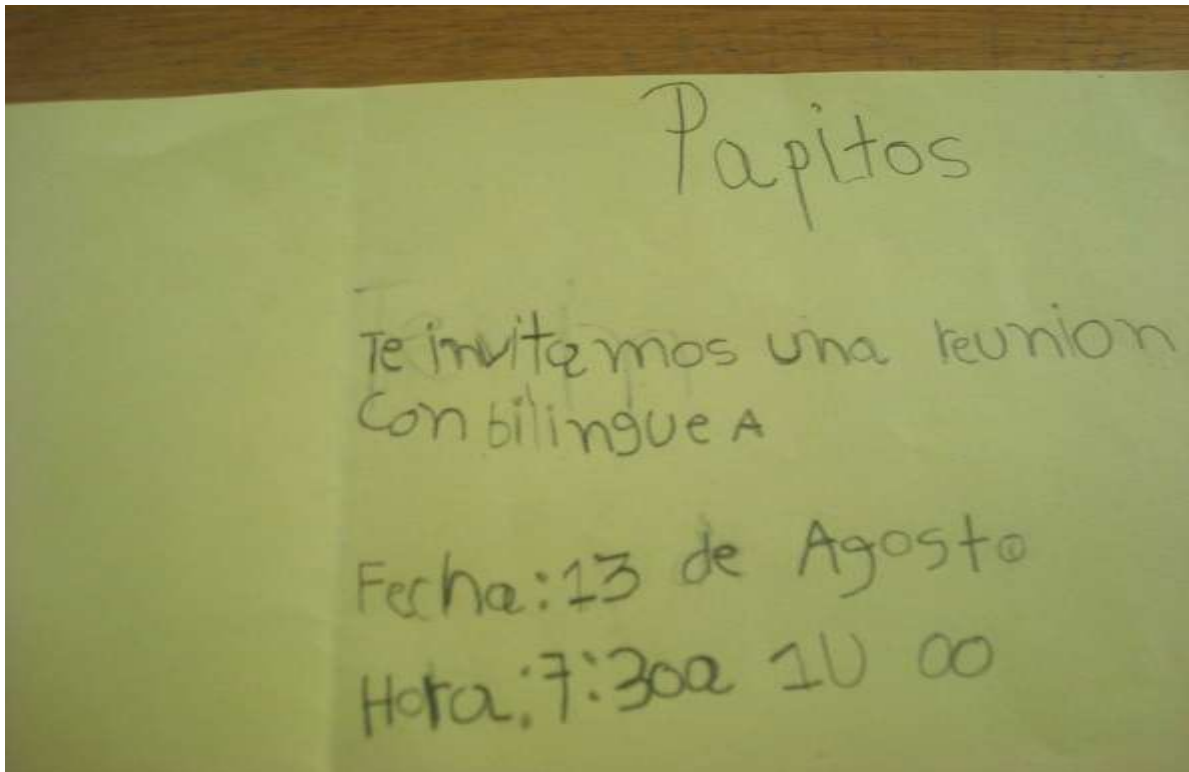 Papitos
Te invitamos una reunion
Con bilingue A
Fecha: 13 de Agosto
Hora: 7:30 a 10 00